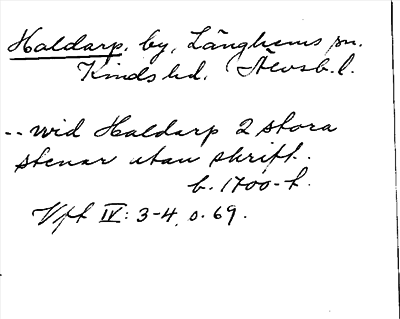 Haldarp, by, Länghems sn.
Kinds hd. Älvsb. l.
-- wid Haldarp 2 stora
stenar utan skrift.
b. 1700-t.
Vft IV: 3-4, s. 69.